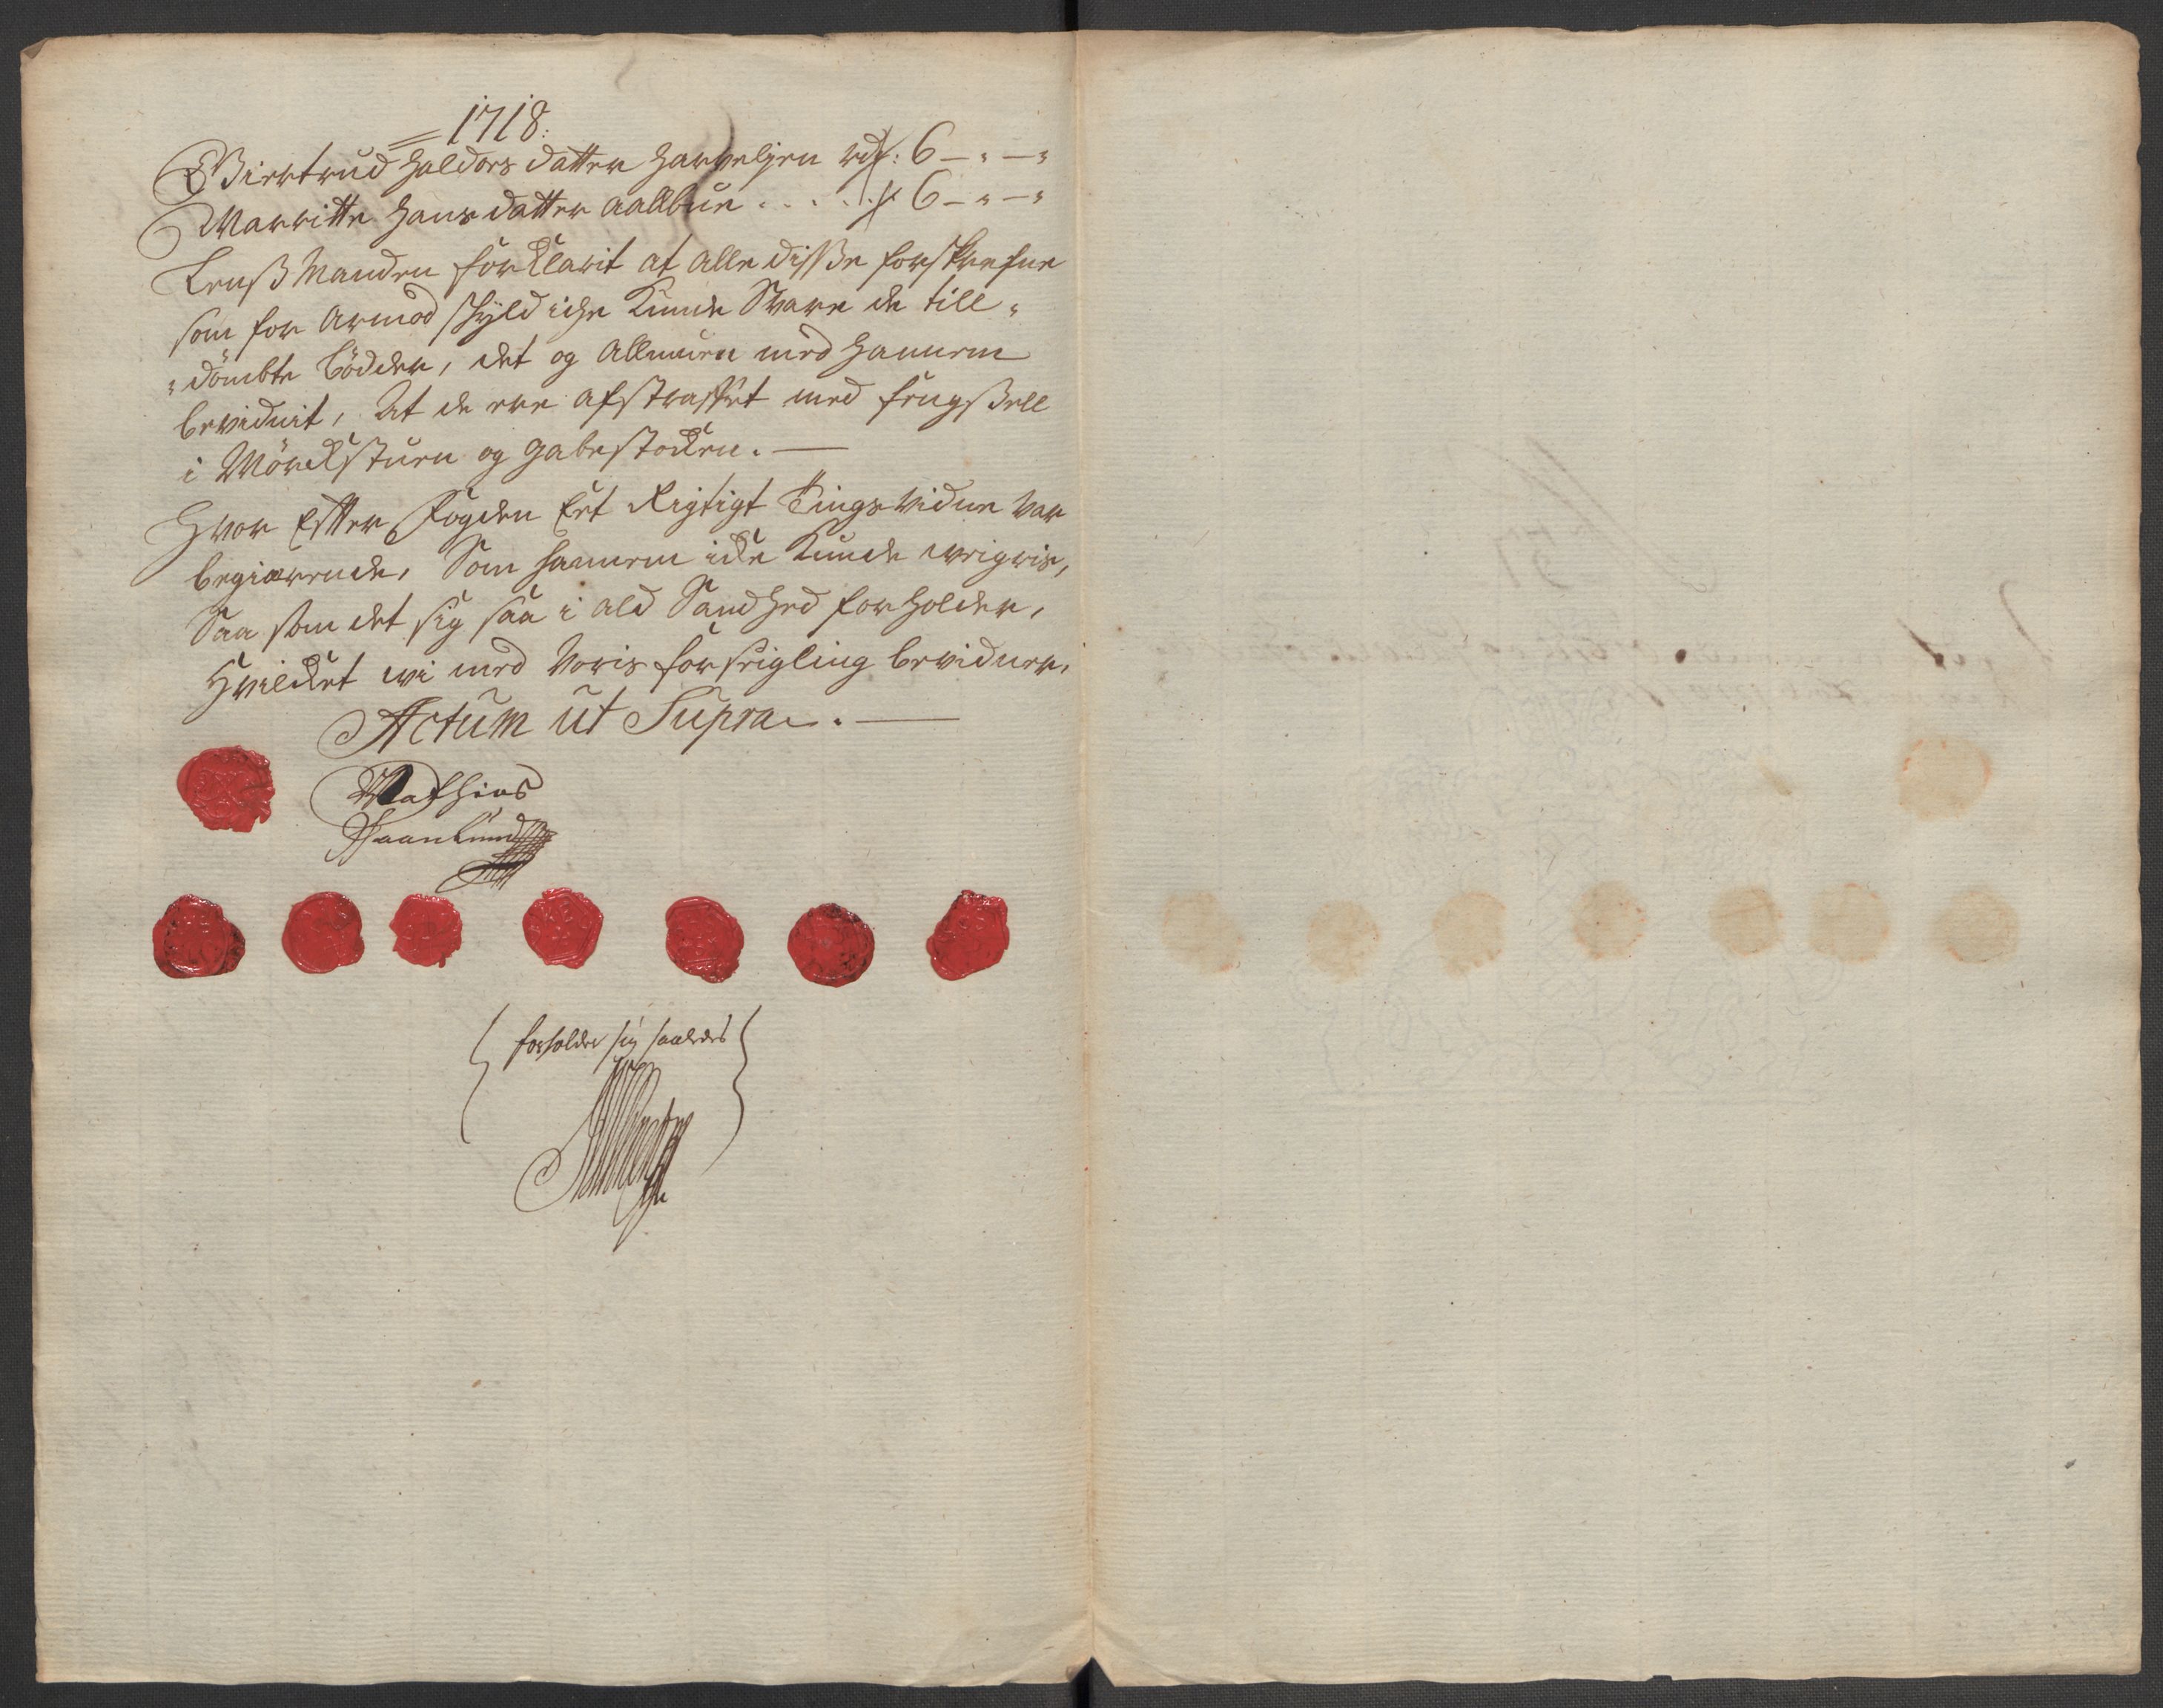 1718:
Giertrud Haldors datter Harveljen rdr: 6 – " – "
Marritte Hans datter Aalbue . . . . . 6 – " – "
Lenß Manden forklarit at alle diße forskrefne
som for Armod skyld iche kunde Svare de till-
dömbte Bödder, det og Allmuen med hannem
bevidnit, At de ere afstraffet med fengßell
i Mörckstuen og gabestocken. —
Hvor Efter Fogden Eet Rigtigt Tings Vidne var
begiærende, Som hannem icke kunde wegris,
Saa som det sig saa i ald Sandhed forholder,
Hvilcket wi med Voris forseigling bevidner.
Actum ut Supra. —
Mathias
forholder sig saaledes